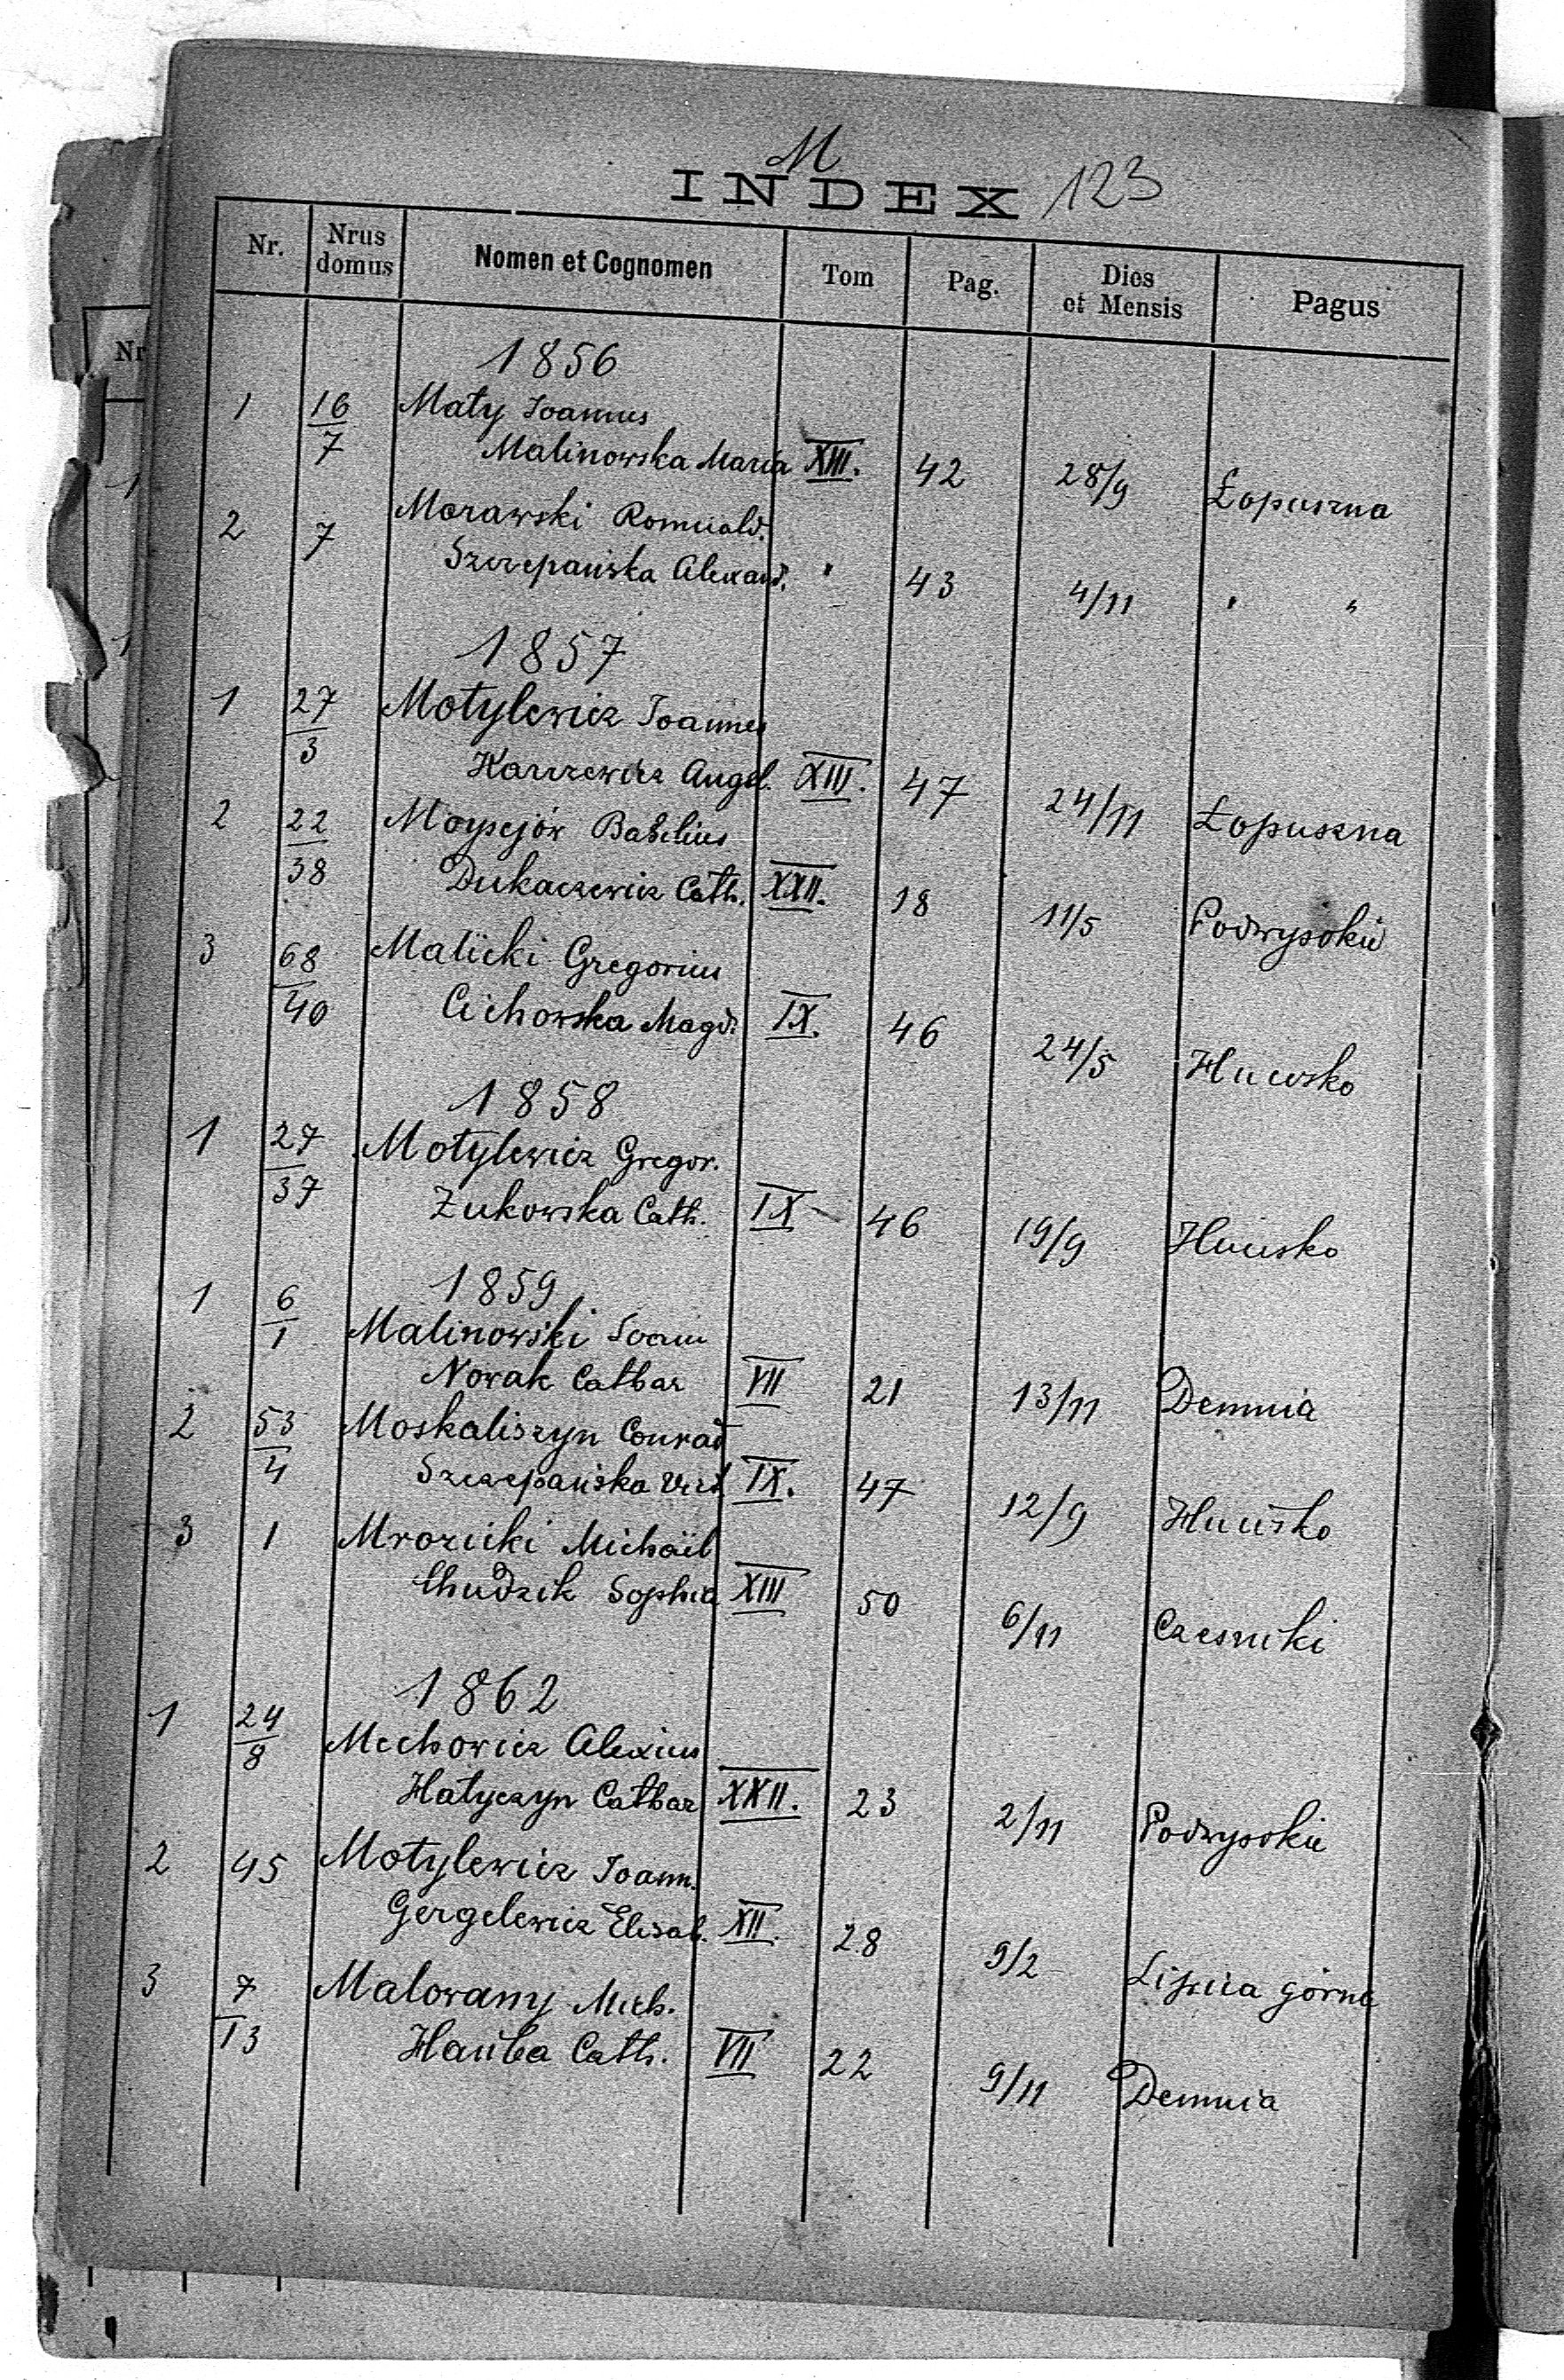 M
INDEX 123
Nr. Nrus domus Nomen et Cognomen Tom Pag. Dies et Mensis Pagus
1856
1 16/7 Maty Joannes
Malinowska Maria XIII. 42 28/9 Łopuszna
2 7 Morawski Romuald.
Szczepańska Alexand. " 43 4/11 " "
1857
1 27/3 Motylewicz Joannes
Karczewicz Angel. XIII. 47 24/11 Łopuszna
2 22/38 Moysejów Basilius
Dukaczewicz Cath. XXII. 18 11/5 Podwysokie
3 68/40 Malicki Gregorius
Cichowska Magd. IX. 46 24/5 Hucisko
1858
1 27/37 Motylewicz Gregor.
Żukowska Cath. IX 46 19/9 Hucisko
1859
1 6/1 Malinowski Joann
Nowak Cathar VII 21 13/11 Demnia
2 53/4 Moskaliszyn Conrad
Szczepańska IX. 47 12/9 Hucisko
3 1 Mrozicki Michaël
Chudzik Sophia XIII 50 6/11 Czesniki
1862
1 24/8 Mechowicz Alexius
Hatyczyn Cathar XXII. 23 2/11 Podwysokie
2 45 Motylewicz Joann.
Gergelewicz Elisab. XII. 28 9/2 Lipica górna
3 7/13 Malowany Mich.
Hańba Cath. VII 22 9/11 Demnia
Nr
1
1